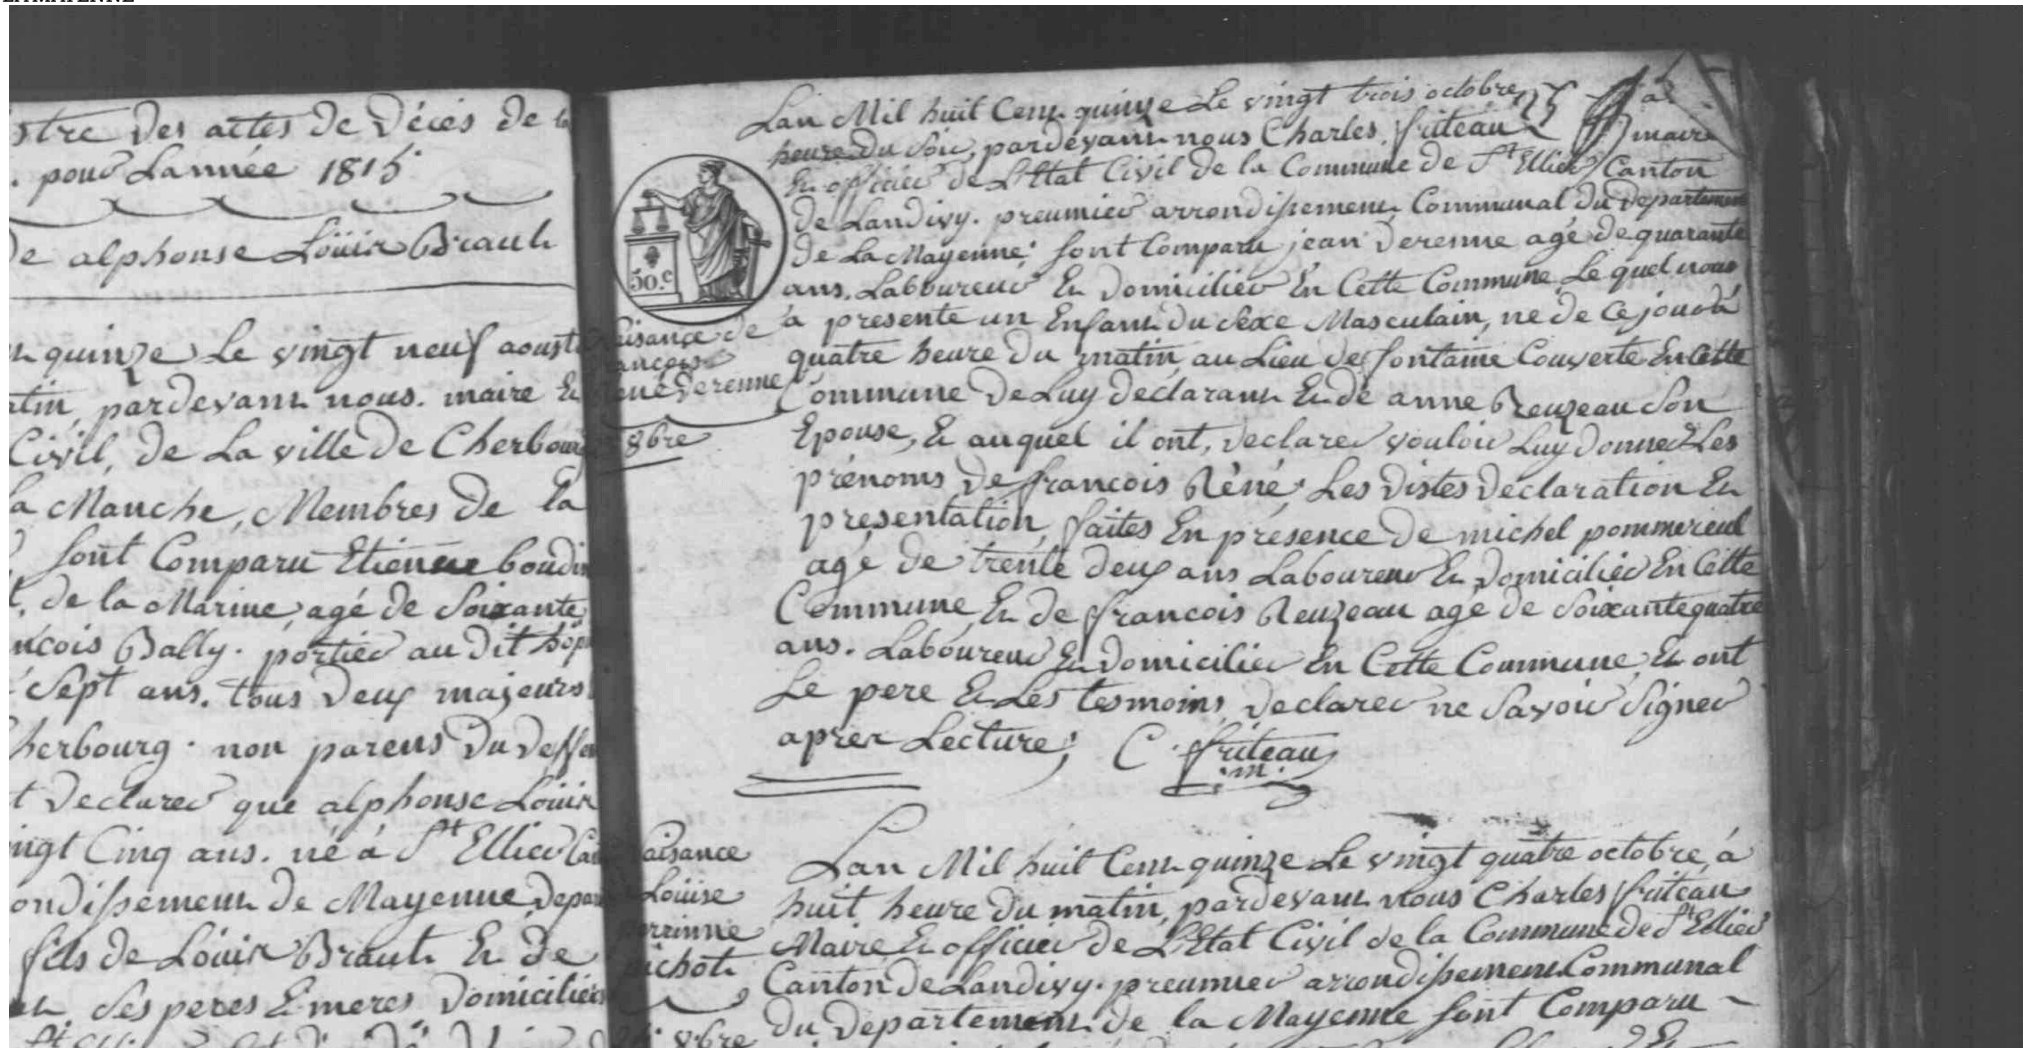 stre Des actes de Décés de la
. pour Lannée 1815.
De alphonse Loüis Brault
quinze Le vingt neuf aoust
atin, pardevant nous. maire Et
Civil, de La ville de Cherbourg
La Manche, Membres de la
sont Comparu Etienne boudin
de la Marine, agé de Soixante
ancois Bally. portier au dit hôp
Sept ans. tous Deux majeurs
herbourg. non parens Du deffun
t Declarer que alphonse Loüis
ingt Cinq ans. né à St Ellier Can
ondissement de Mayenne, Depar
fils de Loüis Brault Et de
Ses peres Et meres Domiciliers
Lan Mil huit Cent quinze Le vingt trois octobre
heure du Soir, pardevant nous Charles friteau maire
Et officier de L'Etat Civil de la Commune de St Ellier Canton
de Landivy. preumier arrondissement Communal du Departement
de La Mayenne; sont Comparu jean Derenne agé de quarante
ans. Laboureur Et Domicilier En Cette Commune, Le quel nous
a presente un Enfant du Sexe Masculain, ne de ce jour à
quatre heure du matin, au Lieu de fontaine Couverte En Cette
Commune De Luy declarant Et de anne Reuzeau Son
Epouse, Et auquel il ont, declarer vouloir Luy donner Les
prénoms de francois Réné; Les Distes Declaration Et
présentation, faites En présence de michel pommereul
agé de trente deux ans Laboureur Et Domicilier En Cette
Commune, Et de francois Reuzeau agé de Soixante quatre
ans. Laboureur Et Domicilier En Cette Commune, Et ont
Le pere Et Les tesmoins, Declarer ne Savoir Signer
apres Lecture; C. friteau
.m.
50.c
Naisance de
francois
Rene Derenne
8bre
Lan Mil huit Cent quinze Le vingt quatre octobre, à
huit, heure du matin, pardevant nous Charles friteau
Maire Et officier de L'Etat Civil de la Commune de St Ellier
Canton de Landivy. preumier arrondissement Communal
du Departement de la Mayenne sont Comparu
Naisance
Loüise
perrinne
8bre